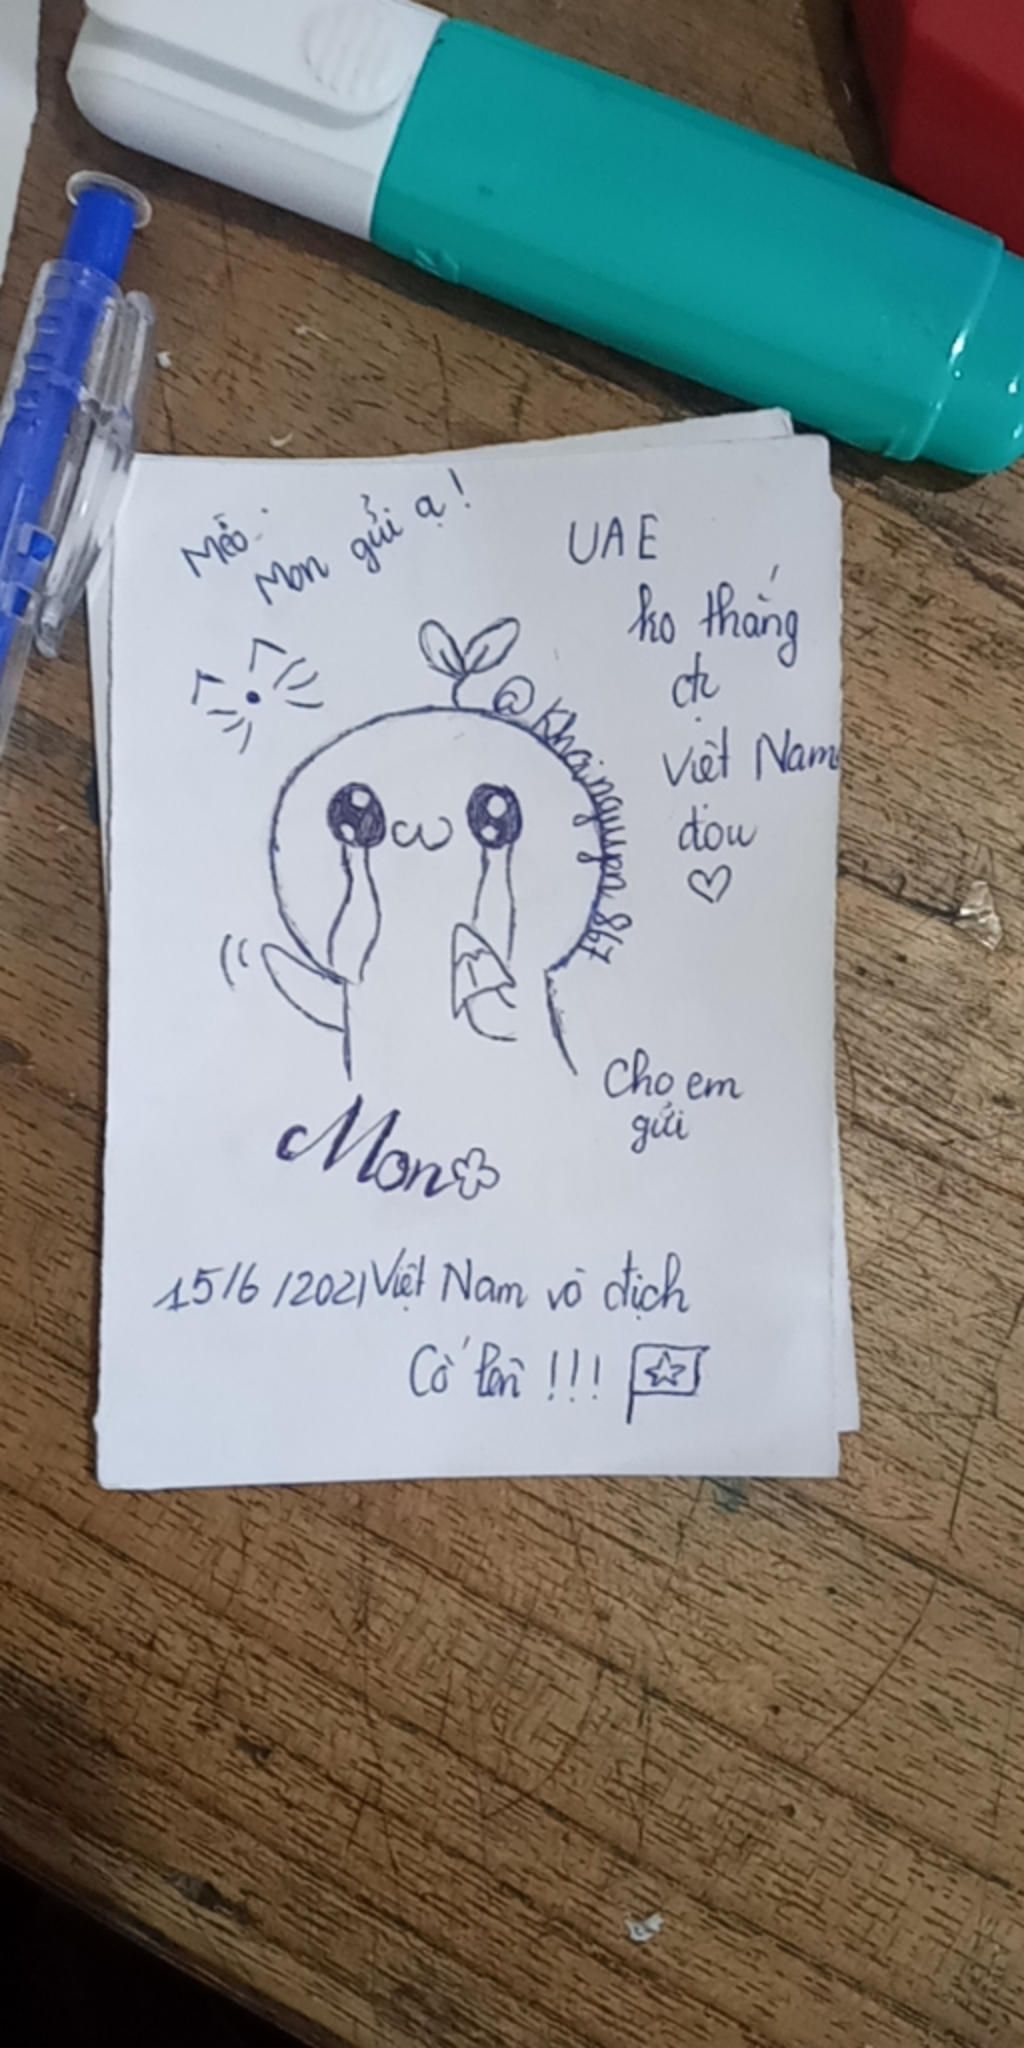 Mèo
Mon gửi ạ!
UAE
ko thắng
đc
Việt Nam
đou
@Khainguyen867
Cho em
gửi
Mon
15/6/2021 Việt Nam vô địch
Cố lên!!!